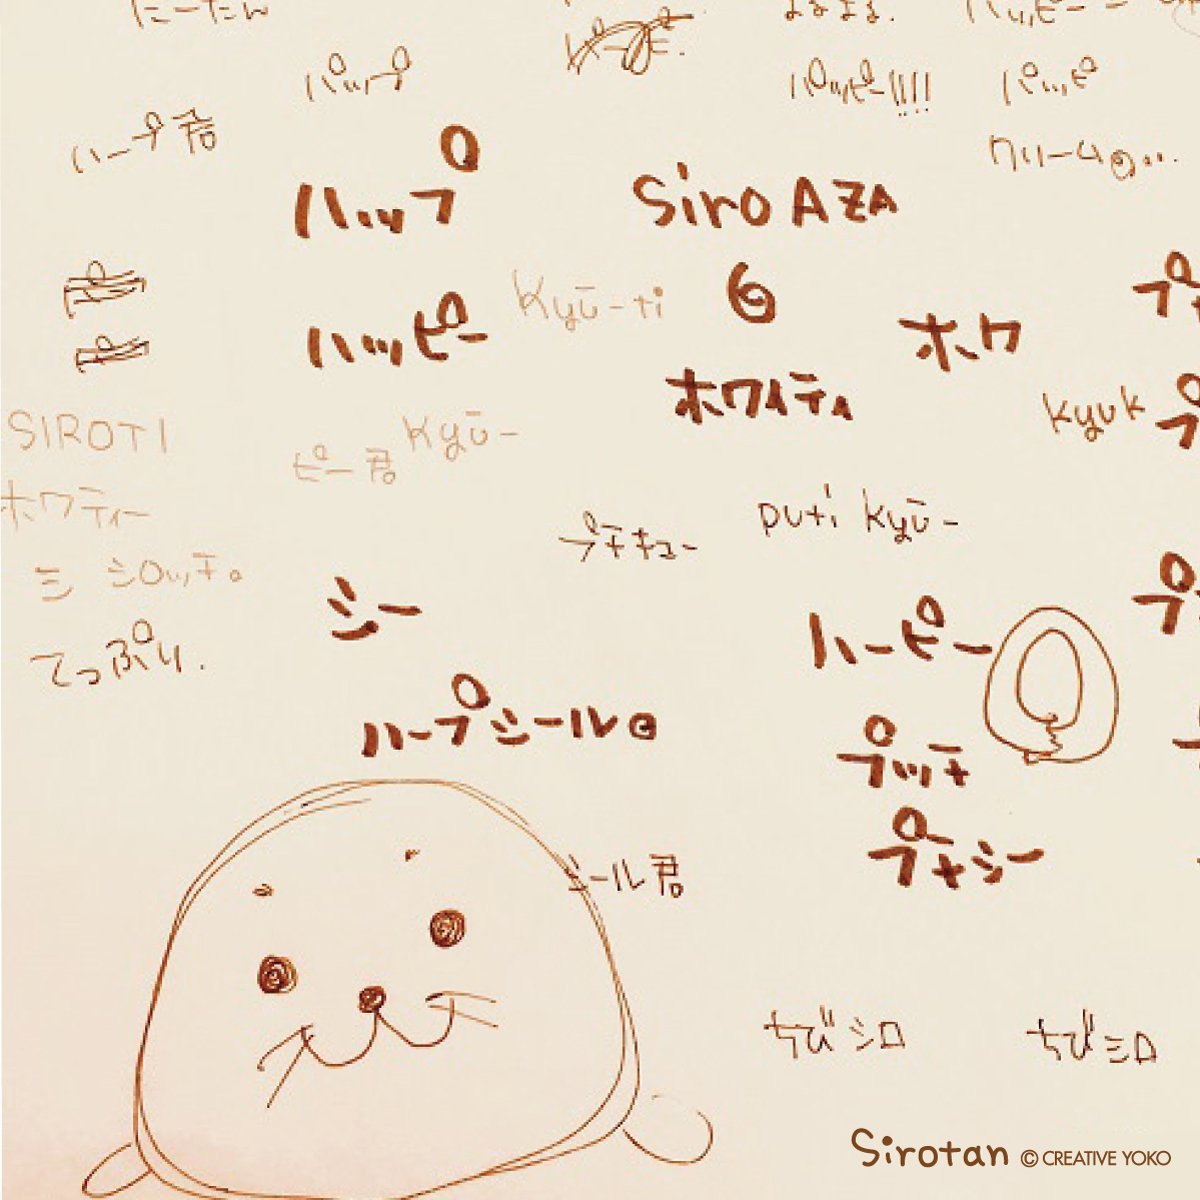 にーたん
パップ
パッピー!!!!
パッピ
ハープ君
クリーム@...
ハップ
Siro AZA
ハッピー
Kyū-ti
ホワ
ホワイティ
kyuk
SIROTI
ピー君
Kyū-
ホワティー
puti kyū-
プチキュー
ミ シロッチ。
シー
ハーピー
てっぷり.
ハープシール@
プッチ
プチシー
シール君
ちびシロ
ちびシロ
Sirotan © CREATIVE YOKO